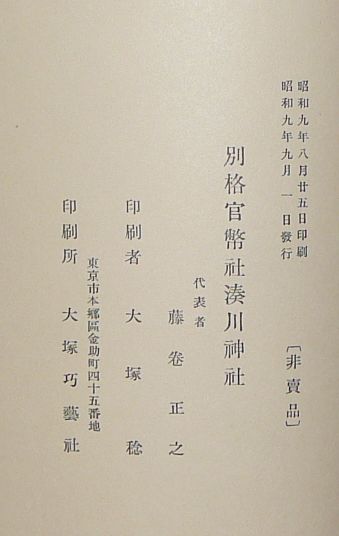 昭和九年八月廿五日印刷
昭和九年九月一日發行
〔非賣品〕
別格官幣社湊川神社
代表者
藤巻正之
印刷者 大塚稔
東京市本鄕區金助町四十五番地
印刷所 大塚巧藝社